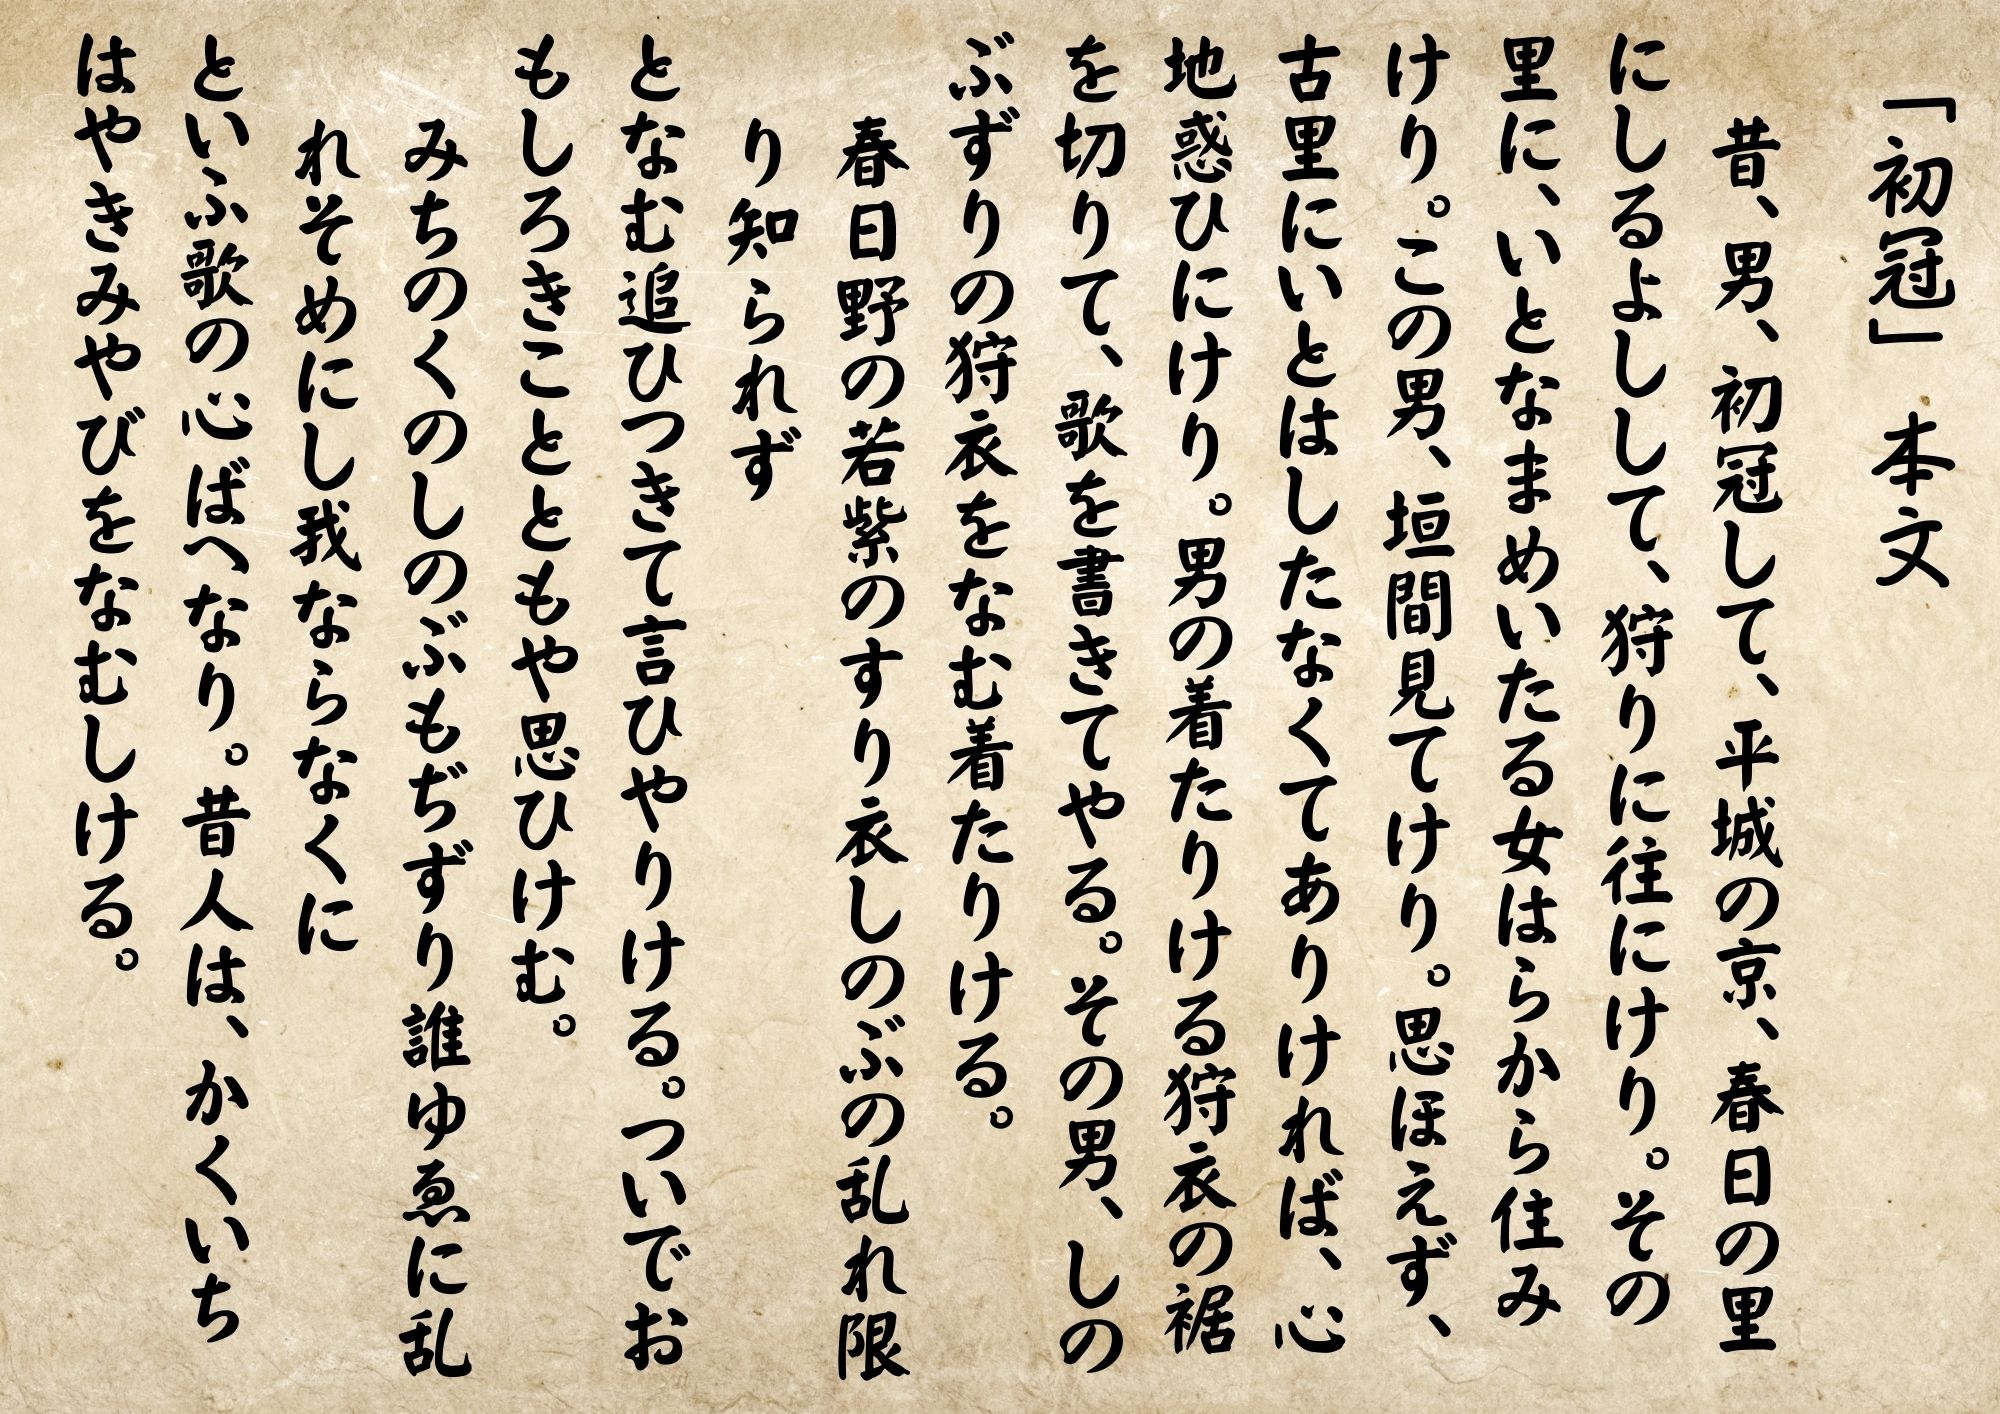 「初冠」本文
昔、男、初冠して、平城の京、春日の里
にしるよしして、狩りに往にけり。その
里に、いとなまめいたる女はらから住み
けり。この男、垣間見てけり。思ほえず、
古里にいとはしたなくてありければ、心
地惑ひにけり。男の着たりける狩衣の裾
を切りて、歌を書きてやる。その男、しの
ぶずりの狩衣をなむ着たりける。
春日野の若紫のすり衣しのぶの乱れ限
り知られず
となむ追ひつきて言ひやりける。ついでお
もしろきことともや思ひけむ。
みちのくのしのぶもぢずり誰ゆゑに乱
れそめにし我ならなくに
といふ歌の心ばへなり。昔人は、かくいち
はやきみやびをなむしける。